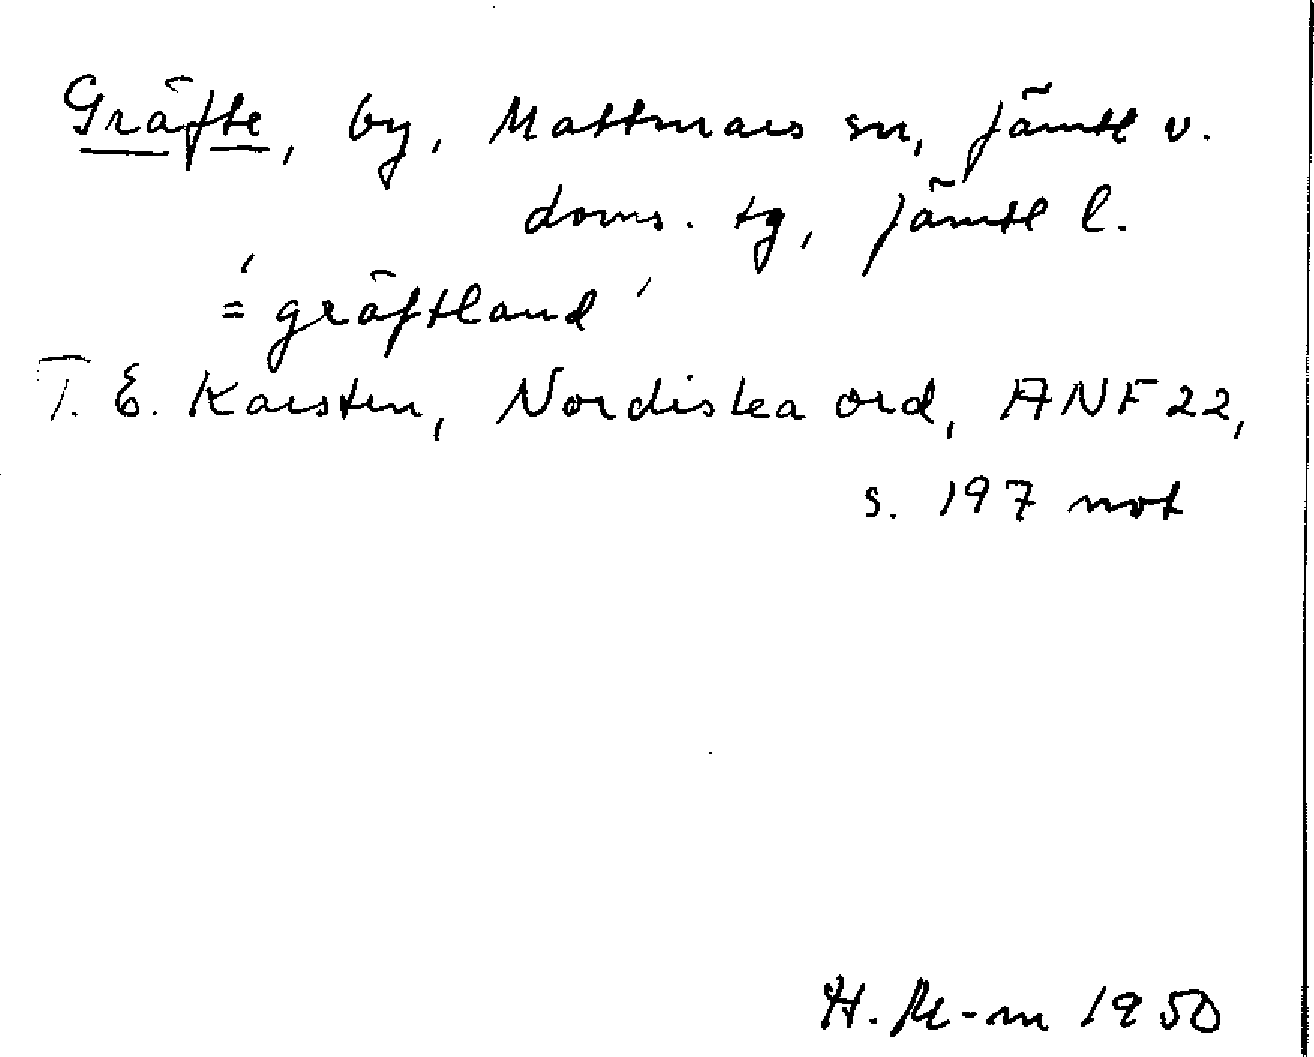 Gräfte, by, Mattmars sn, Jämtl v.
doms. tg, Jämtl l.
= 'gräftland'
T. E. Karsten, Nordiska ord, ANF 22,
s. 197 not
H. 1950